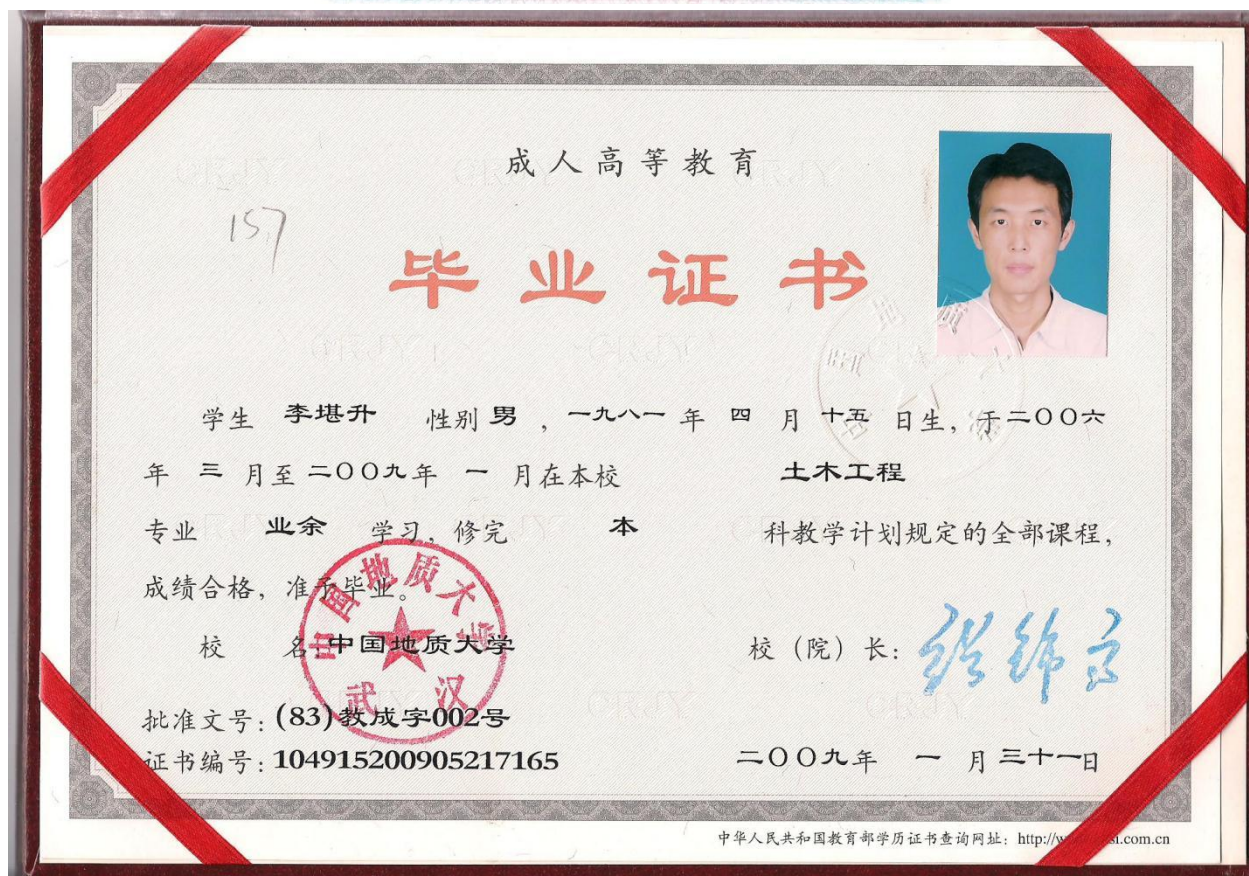 成人高等教育
157
毕业证书
学生 李堪升 性别 男 ，一九八一 年 四 月 十五 日生，于二〇〇六
年 三 月至 二〇〇九年 一 月在本校 土木工程
专业 业余 学习，修完 本 科教学计划规定的全部课程，
成绩合格，准予毕业。
校 名 中国地质大学
中国地质大学
武汉
校（院）长：
批准文号：(83)教成字002号
证书编号：104915200905217165
二〇〇九年 一 月 三十一日
中华人民共和国教育部学历证书查询网址：http://w si.com.cn